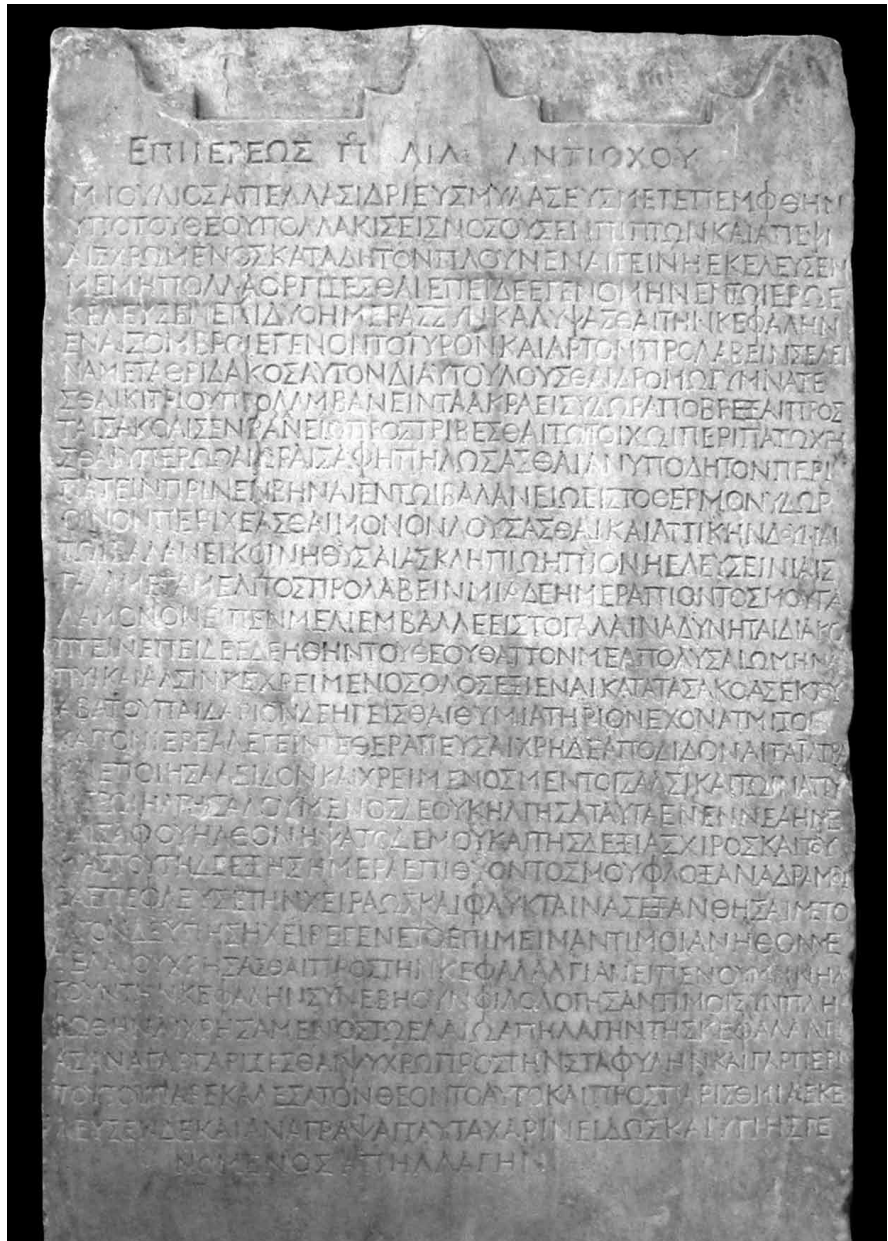 ΕΠΙ ΙΕΡΕΩΣ Π ΑΙΛ ΑΝΤΙΟΧΟΥ
Μ ΙΟΥΛΙΟΣ ΑΠΕΛΛΑΣ ΙΔΡΙΕΥΣ ΜΥΛΑΣΕΥΣ ΜΕΤΕΠΕΜΦΘΗΝ
ΥΠΟ ΤΟΥ ΘΕΟΥ ΠΟΛΛΑΚΙΣ ΕΙΣ ΝΟΣΟΥΣ ΕΝΠΙΠΤΩΝ ΚΑΙ ΑΠΕΨΙ
ΑΙΣ ΧΡΩΜΕΝΟΣ ΚΑΤΑ ΔΗ ΤΟΝ ΠΛΟΥΝ ΕΝ ΑΙΓΕΙΝΗ ΕΚΕΛΕΥΣΕΝ
ΜΕ ΜΗ ΠΟΛΛΑ ΟΡΓΙΖΕΣΘΑΙ ΕΠΕΙ ΔΕ ΕΓΕΝΟΜΗΝ ΕΝ ΤΩ ΙΕΡΩ Ε
ΚΕΛΕΥΣΕΝ ΕΠΙ ΔΥΟ ΗΜΕΡΑΣ ΣΥΝΚΑΛΥΨΑΣΘΑΙ ΤΗΝ ΚΕΦΑΛΗΝ
ΕΝ ΑΙΣ ΟΜΒΡΟΙ ΕΓΕΝΟΝΤΟ ΤΥΡΟΝ ΚΑΙ ΑΡΤΟΝ ΠΡΟΛΑΒΕΙΝ ΣΕΛΕΙ
ΝΑ ΜΕΤΑ ΘΡΙΔΑΚΟΣ ΑΥΤΟΝ ΔΙ ΑΥΤΟΥ ΛΟΥΣΘΑΙ ΔΡΟΜΩ ΓΥΜΝΑΖΕ
ΣΘΑΙ ΚΙΤΡΙΟΥ ΠΡΟΛΑΜΒΑΝΕΙΝ ΤΑ ΑΚΡΑ ΕΙΣ ΥΔΩΡ ΑΠΟΒΡΕΞΑΙ ΠΡΟΣ
ΤΑΙΣ ΑΚΟΑΙΣ ΕΝ ΒΑΛΑΝΕΙΩ ΠΡΟΣΤΡΙΒΕΣΘΑΙ ΤΩ ΤΟΙΧΩΙ ΠΕΡΙΠΑΤΩ ΧΡΗ
ΣΘΑΙ ΥΠΕΡΩΩ ΑΙΩΡΑΙΣ ΑΦΗ ΠΗΛΩΣΑΣΘΑΙ ΑΝΥΠΟΔΗΤΟΝ ΠΕΡΙ
ΠΑΤΕΙΝ ΠΡΙΝ ΕΝΒΗΝΑΙ ΕΝ ΤΩΙ ΒΑΛΑΝΕΙΩ ΕΙΣ ΤΟ ΘΕΡΜΟΝ ΥΔΩΡ
ΟΙΝΟΝ ΠΕΡΙΧΕΑΣΘΑΙ ΜΟΝΟΝ ΛΟΥΣΑΣΘΑΙ ΚΑΙ ΑΤΤΙΚΗΝ ΔΟΥΝΑΙ
ΤΩΙ ΒΑΛΑΝΕΙ ΚΟΙΝΗ ΘΥΣΑΙ ΑΣΚΛΗΠΙΩ ΗΠΙΟΝΗ ΕΛΕΥΣΕΙΝΙΑΙΣ
ΓΑΛΑ ΜΕΤΑ ΜΕΛΙΤΟΣ ΠΡΟΛΑΒΕΙΝ ΜΙΑ ΔΕ ΗΜΕΡΑ ΠΙΟΝΤΟΣ ΜΟΥ ΓΑ
ΛΑ ΜΟΝΟΝ ΕΙΠΕΝ ΜΕΛΙ ΕΜΒΑΛΛΕ ΕΙΣ ΤΟ ΓΑΛΑ ΙΝΑ ΔΥΝΗΤΑΙ ΔΙΑΚΟ
ΠΤΕΙΝ ΕΠΕΙ ΔΕ ΕΔΕΗΘΗΝ ΤΟΥ ΘΕΟΥ ΘΑΤΤΟΝ ΜΕ ΑΠΟΛΥΣΑΙ ΩΜΗΝ ΝΑ
ΠΥΙ ΚΑΙ ΑΛΣΙΝ ΚΕΧΡΕΙΜΕΝΟΣ ΟΛΟΣ ΕΞΙΕΝΑΙ ΚΑΤΑ ΤΑΣ ΑΚΟΑΣ ΕΚ ΤΟΥ
ΑΒΑΤΟΥ ΠΑΙΔΑΡΙΟΝ ΔΕ ΗΓΕΙΣΘΑΙ ΘΥΜΙΑΤΗΡΙΟΝ ΕΧΟΝ ΑΤΜΙΖΟΝ
ΚΑΙ ΤΟΝ ΙΕΡΕΑ ΛΕΓΕΙΝ ΤΕΘΕΡΑΠΕΥΣΑΙ ΧΡΗ ΔΕ ΑΠΟΔΙΔΟΝΑΙ ΤΑ ΙΑΤΡΑ
ΚΑΙ ΕΠΟΙΗΣΑ Α ΕΙΔΟΝ ΚΑΙ ΧΡΕΙΜΕΝΟΣ ΜΕΝ ΤΟΙΣ ΑΛΣΙ ΚΑΙ ΤΩΙ ΝΑΠΥ
ΥΓΡΩΙ ΗΛΓΗΣΑ ΛΟΥΜΕΝΟΣ ΔΕ ΟΥΚ ΗΛΓΗΣΑ ΤΑΥΤΑ ΕΝ ΕΝΝΕΑ ΗΜΕ
ΡΑΙΣ ΑΦ ΟΥ ΗΛΘΟΝ ΗΨΑΤΟ ΔΕ ΜΟΥ ΚΑΙ ΤΗΣ ΔΕΞΙΑΣ ΧΙΡΟΣ ΚΑΙ ΤΟΥ
ΜΑΣΤΟΥ ΤΗ ΔΕ ΕΞΗΣ ΗΜΕΡΑ ΕΠΙΘΥΟΝΤΟΣ ΜΟΥ ΦΛΟΞ ΑΝΑΔΡΑΜΟΥ
ΣΑ ΕΠΕΦΛΕΥΣΕ ΤΗΝ ΧΕΙΡΑ ΩΣ ΚΑΙ ΦΛΥΚΤΑΙΝΑΣ ΕΞΑΝΘΗΣΑΙ ΜΕΤ Ο
ΛΙΓΟΝ ΔΕ ΥΓΙΗΣ Η ΧΕΙΡ ΕΓΕΝΕΤΟ ΕΠΙΜΕΙΝΑΝΤΙ ΜΟΙ ΑΝΗΘΟΝ ΜΕ
Τ ΕΛΑΙΟΥ ΧΡΗΣΑΣΘΑΙ ΠΡΟΣ ΤΗΝ ΚΕΦΑΛΑΛΓΙΑΝ ΕΙΠΕΝ ΟΥ ΜΗΝ ΗΛ
ΓΟΥΝ ΤΗΝ ΚΕΦΑΛΗΝ ΣΥΝΕΒΗ ΟΥΝ ΦΙΛΟΛΟΓΗΣΑΝΤΙ ΜΟΙ ΣΥΝΠΛΗ
ΡΩΘΗΝΑΙ ΧΡΗΣΑΜΕΝΟΣ ΤΩ ΕΛΑΙΩ ΑΠΗΛΑΓΗΝ ΤΗΣ ΚΕΦΑΛΑΛΓΙ
ΑΣ ΑΝΑΓΑΡΓΑΡΙΖΕΣΘΑΙ ΨΥΧΡΩ ΠΡΟΣ ΤΗΝ ΣΤΑΦΥΛΗΝ ΚΑΙ ΓΑΡ ΠΕΡΙ
ΤΟΥΤΟΥ ΠΑΡΕΚΑΛΕΣΑ ΤΟΝ ΘΕΟΝ ΤΟ ΑΥΤΟ ΚΑΙ ΠΡΟΣ ΠΑΡΙΣΘΜΙΑ ΕΚΕ
ΛΕΥΣΕΝ ΔΕ ΚΑΙ ΑΝΑΓΡΑΨΑΙ ΤΑΥΤΑ ΧΑΡΙΝ ΕΙΔΩΣ ΚΑΙ ΥΓΙΗΣ ΓΕ
ΝΟΜΕΝΟΣ ΑΠΗΛΛΑΓΗΝ